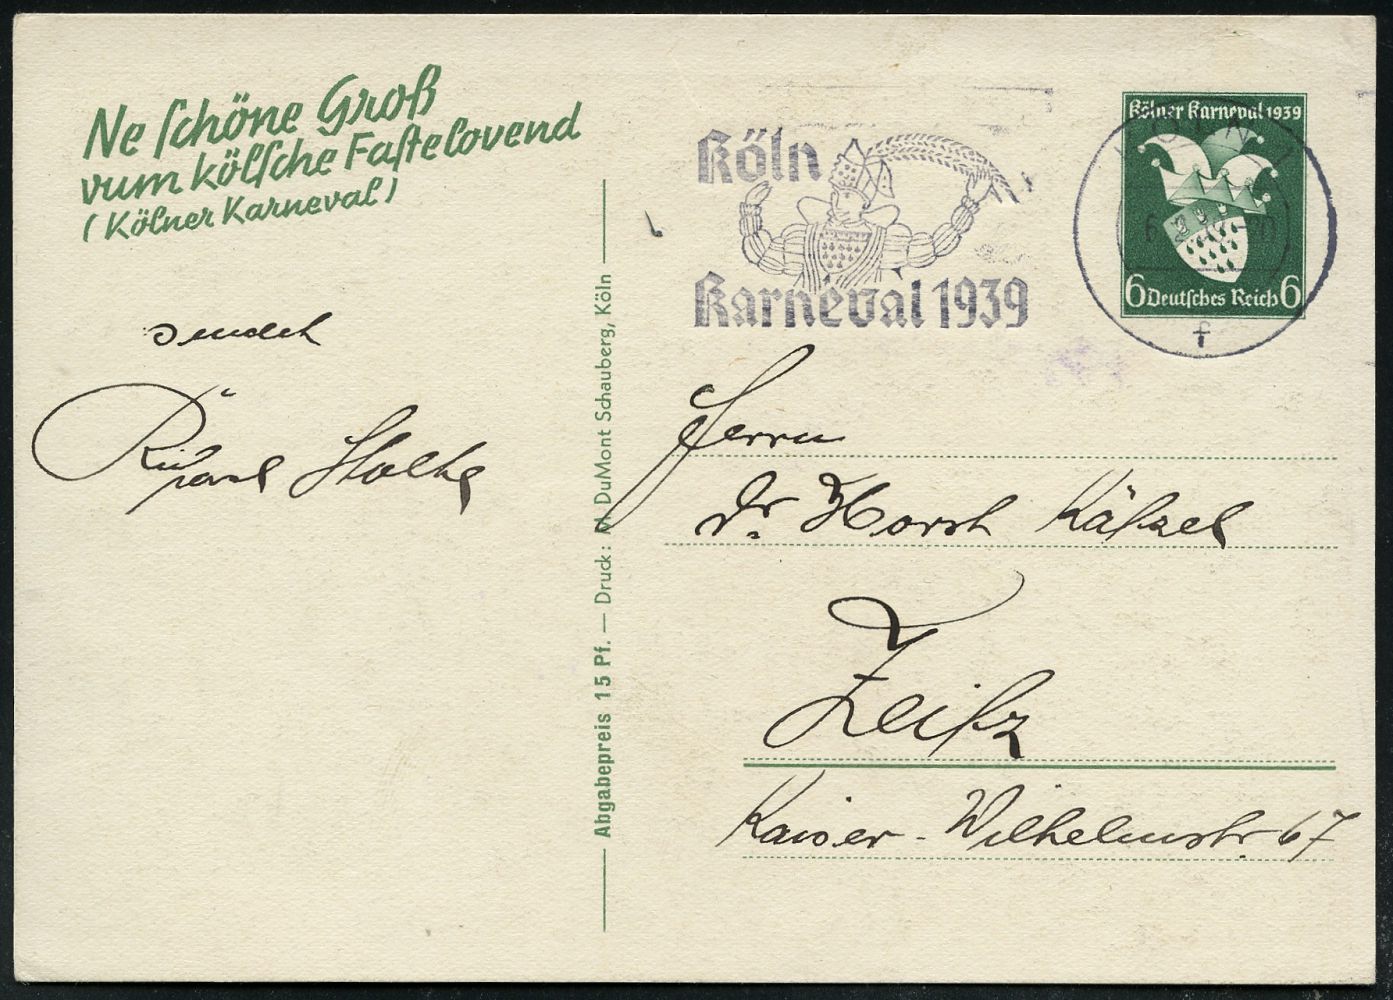 Ne schöne Groß
vum kölsche Fastelovend
(Kölner Karneval)
sendet
Abgabepreis 15 Pf. — Druck: M. DuMont Schauberg, Köln
Köln
Karneval 1939
Kölner Karneval 1939
6 Deutsches Reich 6
f
Herrn
Dr. Horst
Zeitz
Kaiser-Wilhelmstr. 67